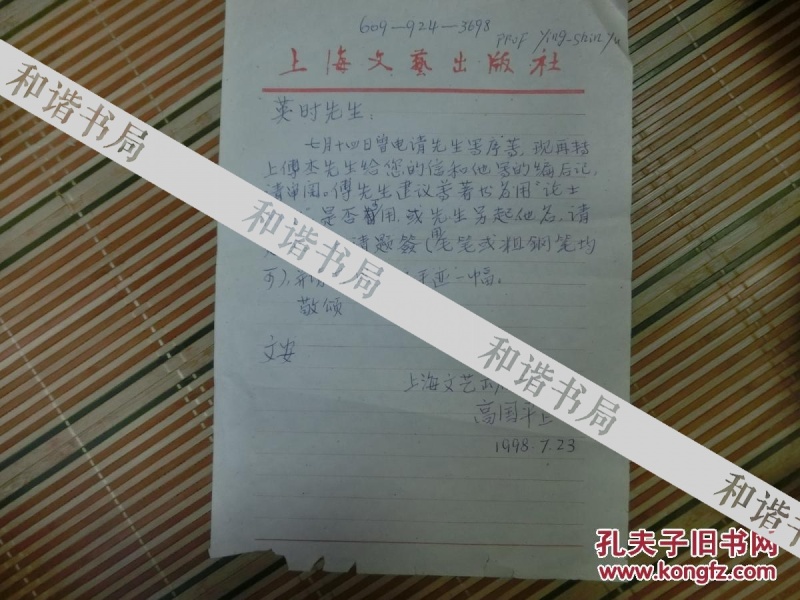 609-924-3698
Prof Ying-shih Yu
上海文藝出版社
英时先生:
七月十四日曾电请先生写序等,现再转
上傅杰先生给您的信和他写的编后记,
请审阅。傅先生建议尊著书名用"论士
是否用,或先生另起他名,请
请题签(用毛笔或粗钢笔均
可),手迹一幅。
敬颂
文安
上海文艺出
高国平
1998.7.23
和谐书局
和谐书局
和谐书局
和谐书局
孔夫子旧书网
www.kongfz.com